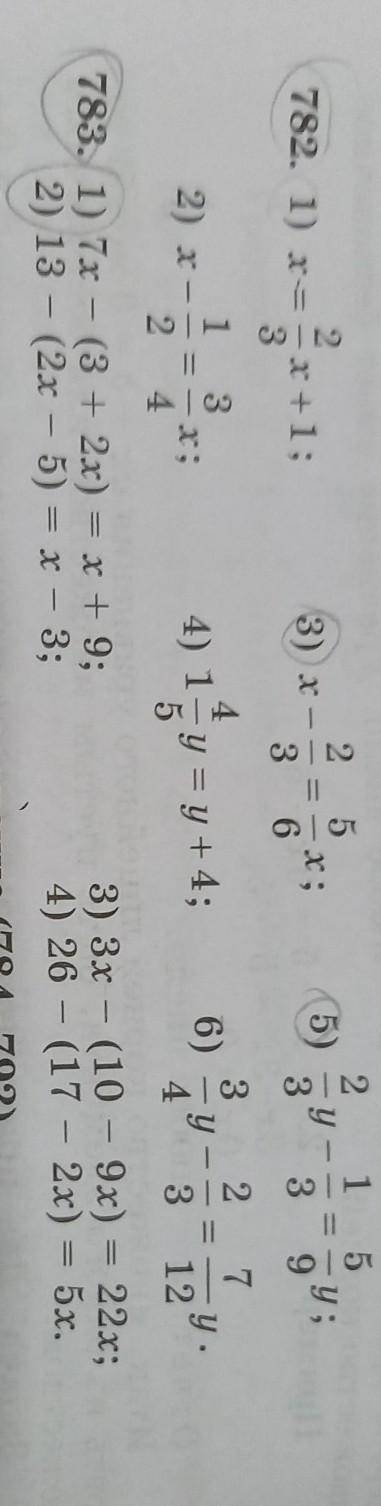 782. 1) x = 2/3 x + 1; 3) x − 2/3 = 5/6 x; 5) 2/3 y − 1/3 = 5/9 y;
2) x − 1/2 = 3/4 x; 4) 1 4/5 y = y + 4; 6) 3/4 y − 2/3 = 7/12 y.
783. 1) 7x − (3 + 2x) = x + 9; 3) 3x − (10 − 9x) = 22x;
2) 13 − (2x − 5) = x − 3; 4) 26 − (17 − 2x) = 5x.